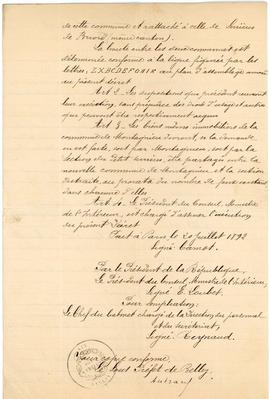 de cette commune et rattaché à celle de
de Briord (même canton).
La limite entre les deux communes est
déterminée conformément à la ligne figurée par les
lettres, au plan d'assemblage annexé
au présent décret.
Art 2 - Les dispositions qui précèdent auront
lieu sans préjudice des droits d'usage et autres
qui peuvent être respectivement acquis
Art 3 - Les biens meubles immobiliers de la
commune de Montagnieu
en est faite, soit par Montagnieu, soit par la
section partagés entre la
nouvelle commune de Montagnieu et la section
distraite, au prorata du nombre de feux existant
dans chacune d'elles
Art. 4. Le Président du Conseil Ministre
de l'Intérieur, est chargé d'assurer l'exécution
du présent Décret
Fait à Paris le 20 juillet 1892
Signé Carnot.
Par le Président de la République,
Le Président du Conseil Ministre de l'Intérieur,
Signé E. Loubet.
Pour ampliation:
Le Chef du Cabinet chargé de la Direction du personnel
et du secrétariat,
Signé Reynaud.
Pour copie conforme
Le Sous Préfet de Belley